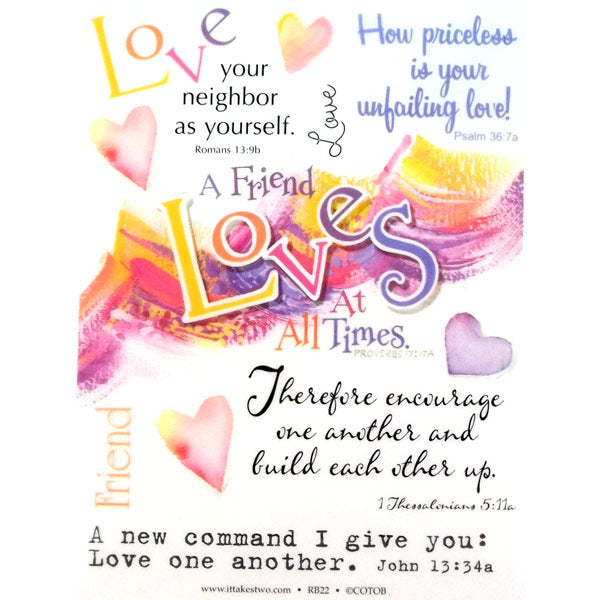 Love
your
neighbor
as yourself.
Romans 13:9b
Love
How priceless
is your
unfailing love!
Psalm 36:7a
A Friend
Loves
At
All Times.
PROVERBS 17:17A
Therefore encourage
one another and
build each other up.
1 Thessalonians 5:11a
Friend
A new command I give you:
Love one another. John 13:34a
www.ittakestwo.com • RB22 • ©COTOB